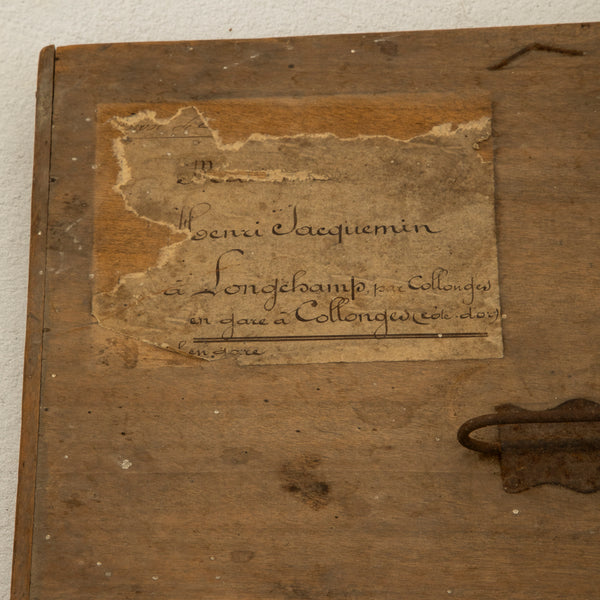 M
Henri Jacquemin
à Longchamp, par Collonges
en gare à Collonges (côte-d'or)
en gare